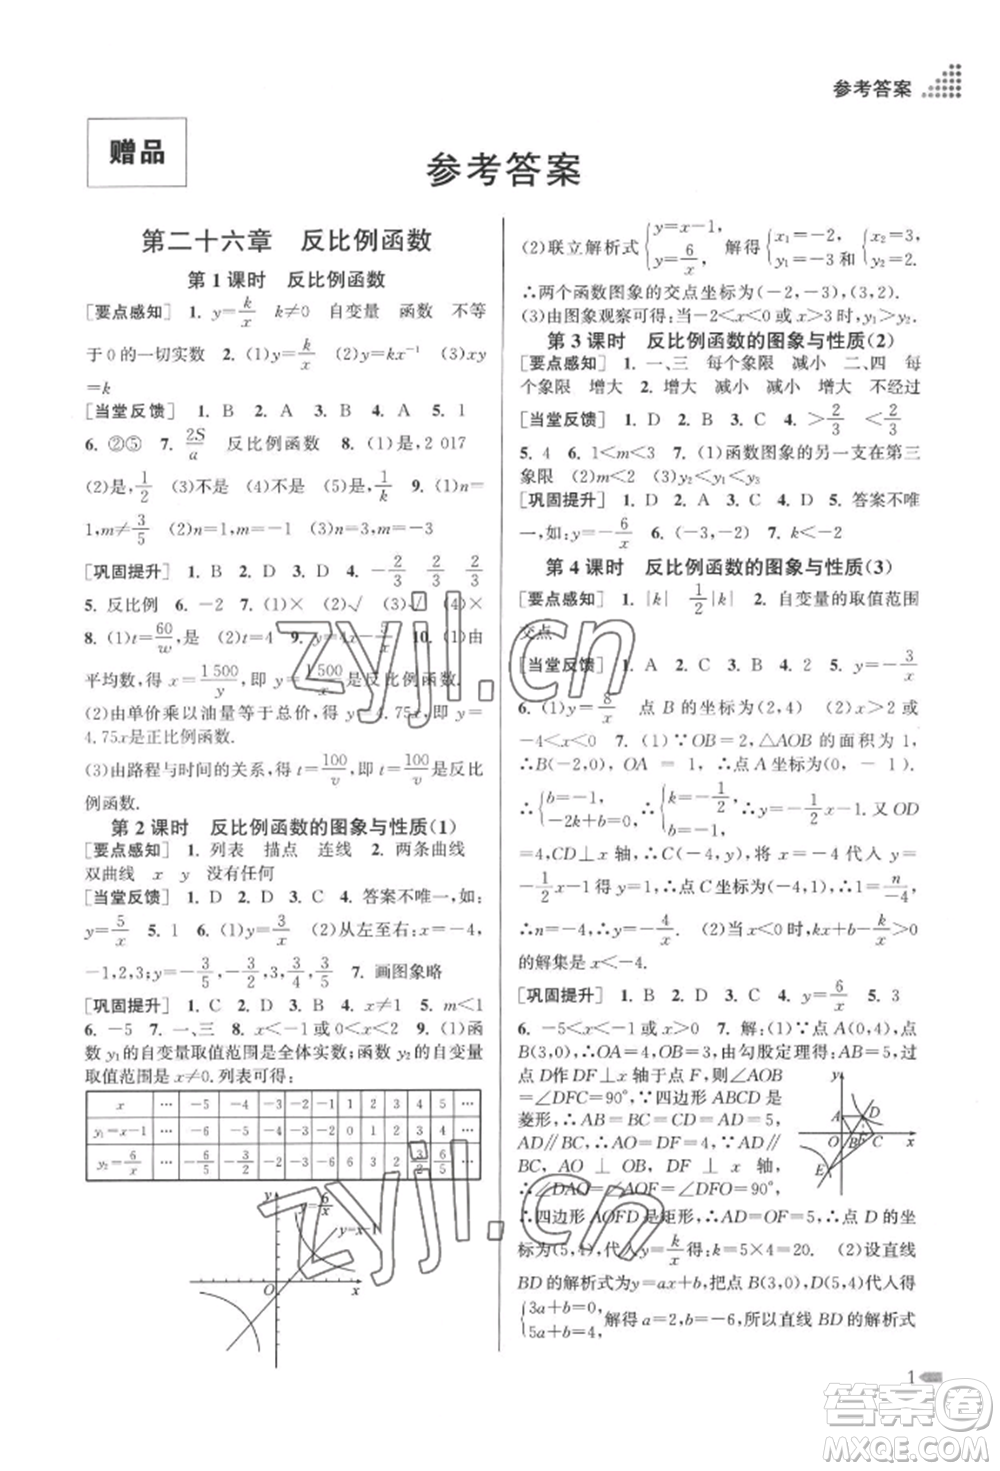 参考答案
赠品
参考答案
第二十六章 反比例函数
第1课时 反比例函数
[要点感知] 1. y=k/x k≠0 自变量 函数 不等
于0的一切实数 2. (1)y=k/x (2)y=kx⁻¹ (3)xy
=k
[当堂反馈] 1. B 2. A 3. B 4. A 5. 1
6. ②⑤ 7. 2S/a 反比例函数 8. (1)是, 2 017
(2)是, 1/2 (3)不是 (4)不是 9. (1)n=
1,m≠3/5 (2)n=1,m=-1 (3)n=-3,m=-3
[巩固提升] 1. B 2. D 3. D 4. -2/3 -2/3
5. 反比例 6. -2 7. (1)× (2)√ (3)√ (4)×
8. (1)t=60/w 是 (2)t=4 9. y=4x-5/x 10. (1)由
平均数,得x=1 500/y,即y=1 500/x是反比例函数.
(2)由单价乘以油量等于总价,得y=4.75x,即y=
4.75x是正比例函数.
(3)由路程与时间的关系,得t=100/v,即t=100/v是反比
例函数.
第2课时 反比例函数的图象与性质(1)
[要点感知] 1. 列表 描点 连线 2. 两条曲线
双曲线 x y 没有任何
[当堂反馈] 1. D 2. D 3. C 4. 答案不唯一,如:
y=5/x 5. 1 6. (1)y=3/x (2)从左至右:x=-4,
-1,2,3;y=-3/5,-3/2,3,3/5 7. 画图象略
[巩固提升] 1. C 2. D 3. A 4. x≠1 5. m<1
6. -5 7. 一、三 8. x<-1或0<x<2 9. (1)函
数y₁的自变量取值范围是全体实数;函数y₂的自变量
取值范围是x≠0.列表可得:
x … -5 -4 -3 -2 -1 1 2 3 4 5 …
y₁=x-1 … -6 -5 -4 -3 -2 0 1 2 3 4 …
y₂=6/x … -6/5 -3/2 -2 -3 -6 6 3 2 3/2 6/5 …
y y=6/x
y=x-1
O x
(2)联立解析式{y=x-1, y=6/x 解得{x₁=-2, y₁=-3, {x₂=3, y₂=2.
∴两个函数图象的交点坐标为(-2,-3),(3,2).
(3)由图象观察可得:当-2<x<0或x>3时,y₁>y₂.
第3课时 反比例函数的图象与性质(2)
[要点感知] 1. 一、三 每个象限 减小 二、四 每
个象限 增大 2. 增大 减小 减小 增大 不经过
[当堂反馈] 1. D 2. B 3. C 4. >2/3 <2/3
5. 4 6. 1<m<3 7. (1)函数图象的另一支在第三
象限 (2)m<2 (3)y₂<y₁<y₃
[巩固提升] 1. D 2. A 3. C 4. D 5. 答案不唯
一,如:y=-6/x 6. (-3,-2) 7. k<-2
第4课时 反比例函数的图象与性质(3)
[要点感知] 1. |k| 1/2|k| 2. 自变量的取值范围
交点
[当堂反馈] 1. A 2. C 3. A 4. 2 5. y=-3/x
6. (1)y=8/x 点B的坐标为(2,4) (2)x>2或
-4<x<0 7. (1)∵OB=2,△AOB的面积为1,
∴B(-2,0),OA=1.∴点A坐标为(0,-1).
∴{b=-1, -2k+b=0.∴{k=-1/2, b=-1.∴y=-1/2x-1.又OD
=4,CD⊥x轴,∴C(-4,y),将x=-4代入y=
-1/2x-1得y=1,∴点C坐标为(-4,1),∴1=n/-4,
∴n=-4,∴y=-4/x. (2)当x<0时,kx+b-k/x>0
的解集是x<-4.
[巩固提升] 1. B 2. D 3. C 4. y=6/x 5. 3
6. -5<x<-1或x>0 7. 解:(1)∵点A(0,4),点
B(3,0),∴OA=4,OB=3,由勾股定理得:AB=5,
过点D作DF⊥x轴于F,则∠AOB
=∠DFC=90°,∵四边形ABCD是
菱形,∴AB=BC=CD=AD=5,
AD∥BC,∴AO=DF=4,∵AD∥
BC,AO⊥OB,DF⊥x轴,
∴∠DAO=∠AOF=∠DFO=90°,
∴四边形AOFD是矩形,∴AD=OF=5,∴点D坐
标为(5,4),代入y=k/x得:k=5×4=20. (2)设直线
BD的解析式为y=ax+b,把点B(3,0),D(5,4)代入得
{3a+b=0, 5a+b=4, 解得a=2,b=-6,所以直线BD的解析式
y
A D
O B F C x
E
1
zyjl.cn
zyjl.cn
答案圈
MXQE.COM